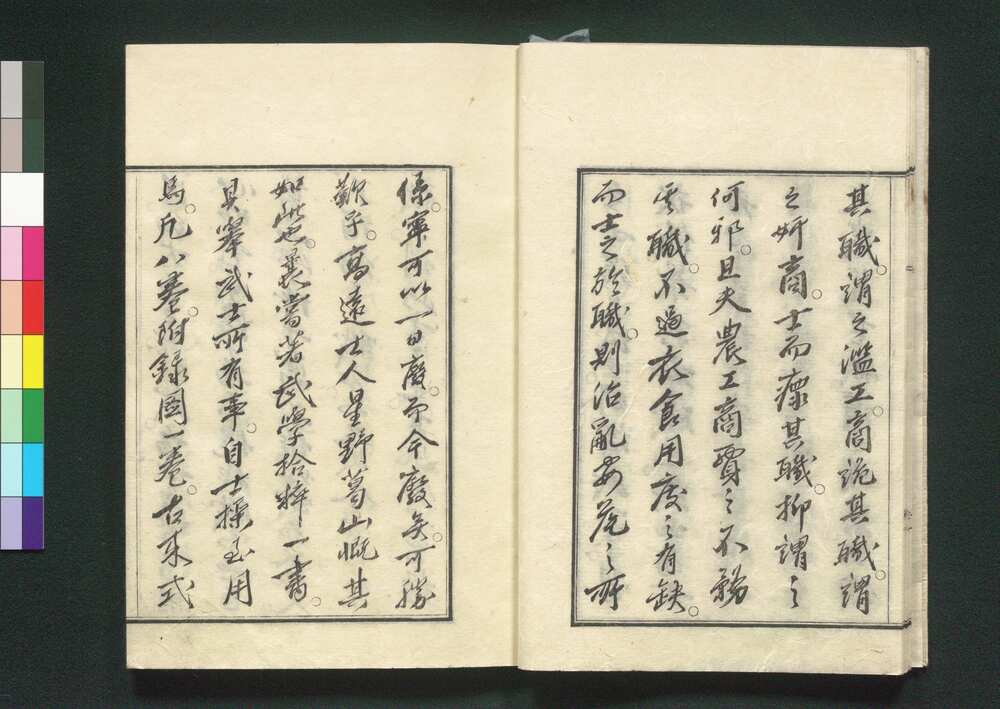 其職。謂之濫工。商詭其職。謂
之奸商。士而瘝其職。抑謂之
何邪。且夫農工商賈之不務
其職。不過衣食用度之有缺。
而士之於職。則治亂安危之所
係。寧可以一日廢。而今廢矣。可勝
歎乎。高遠士人星野葛山慨其
如此也。曩嘗著武學拾粹一書。
具擧武士所有事。自士操至用
馬。凡八卷。附録圖一卷。古来式